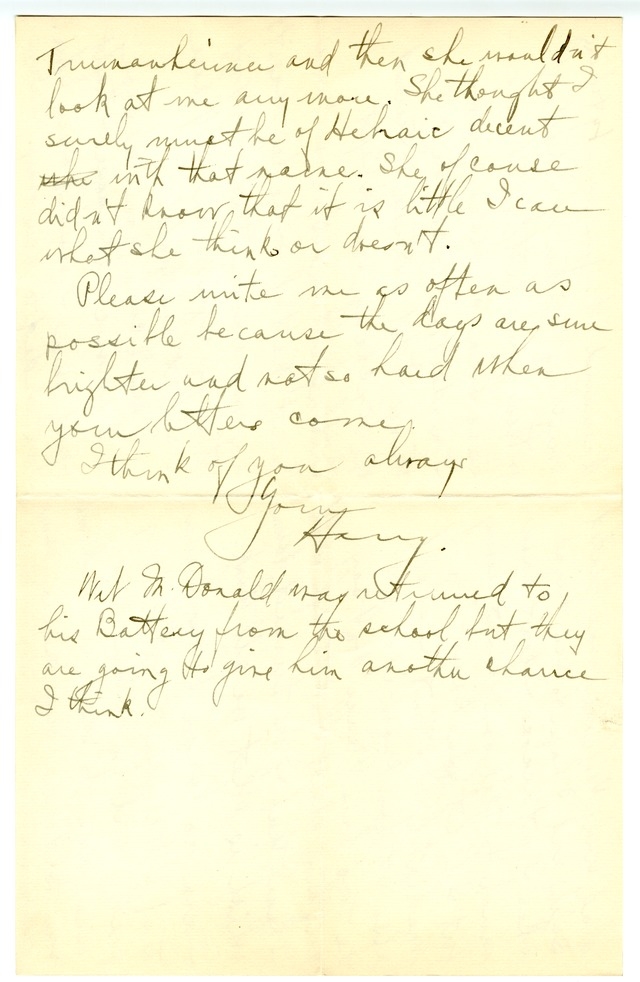 Trumanheimer and then she wouldn't
look at me any more. She thought I
surely must be of Hebraic decent
with that name. She of couse
didn't know that it is little I care
what she thinks or doesn't.
Please write me as often as
possible because the days are sure
brighter and not so hard when
your letters come.
I think of you always
Yours
Harry.
McDonald was returned to
his Battery from the school but they
are going to give him another chance
I think.